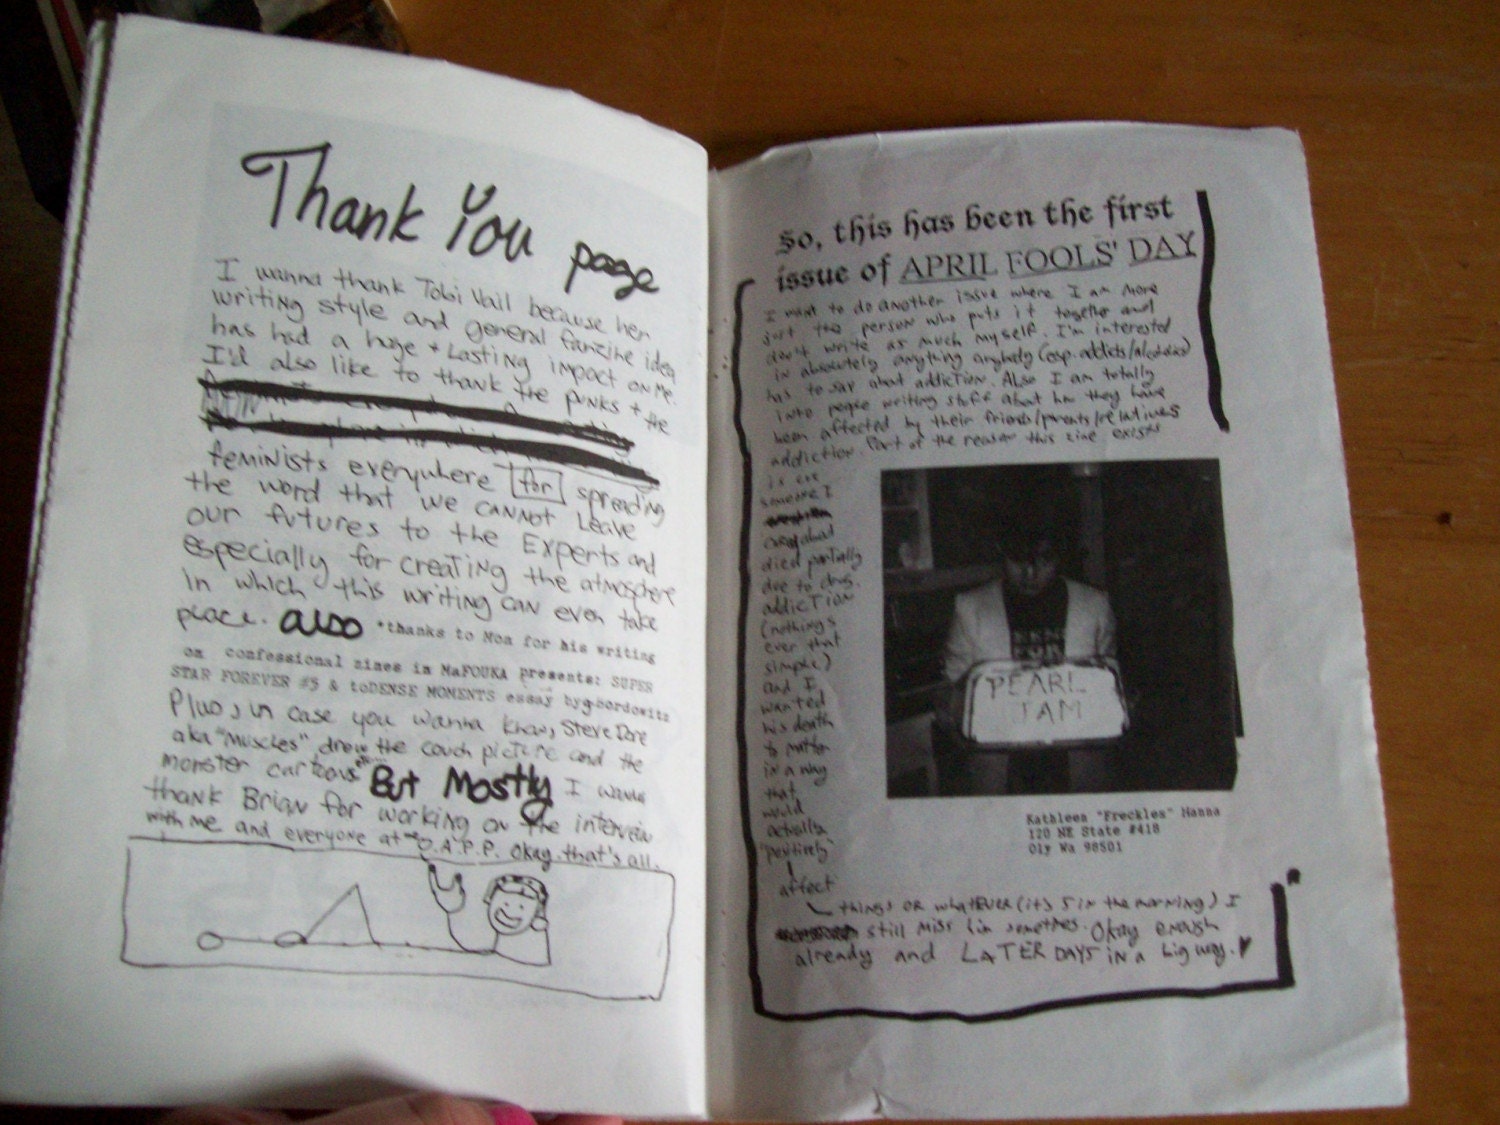 Thank You page
I wanna thank Tobi Vail because her
writing style and general fanzine idea
has had a huge + Lasting impact on me.
I'd also like to thank the punks + the
feminists everywhere for spreading
the word that we CANNOT Leave
our futures to the Experts and
especially for creating the atmosphere
in which this writing can even take
place. also *thanks to Mon for his writing
on confessional zines in MaFOUKA presents: SUPER
STAR FOREVER #3 & toDENSE MOMENTS essay byg.bordowitz
Plus, in case you wanna know, Steve Dore
aka "Muscles" drew the couch picture and the
monster cartoons etc. But Mostly I wanna
thank Brian for working on the interview
with me and everyone at the O.A.P.P. Okay. that's all.
So, this has been the first
issue of APRIL FOOLS' DAY
I want to do another issue where I am more
just the person who puts it together and
don't write as much myself. I'm interested
in absolutely anything anybody (esp. addicts/alcoholics)
has to say about addiction. Also I am totally
into people writing stuff about how they have
been affected by their friends/parents/relatives
addiction. Part of the reason this zine exists
is
someone I
cared about
died partially
due to drug
addiction
(nothing's
ever that
simple)
and I
wanted
his death
to matter
in a way
that
would
actually
"positively"
affect
things or whatever (it's 5 in the morning) I
still miss him sometimes. Okay enough
already and LATER DAYS in a big way. ♥
PEARL
JAM
Kathleen "Freckles" Hanna
120 NE State #418
Oly Wa 98501